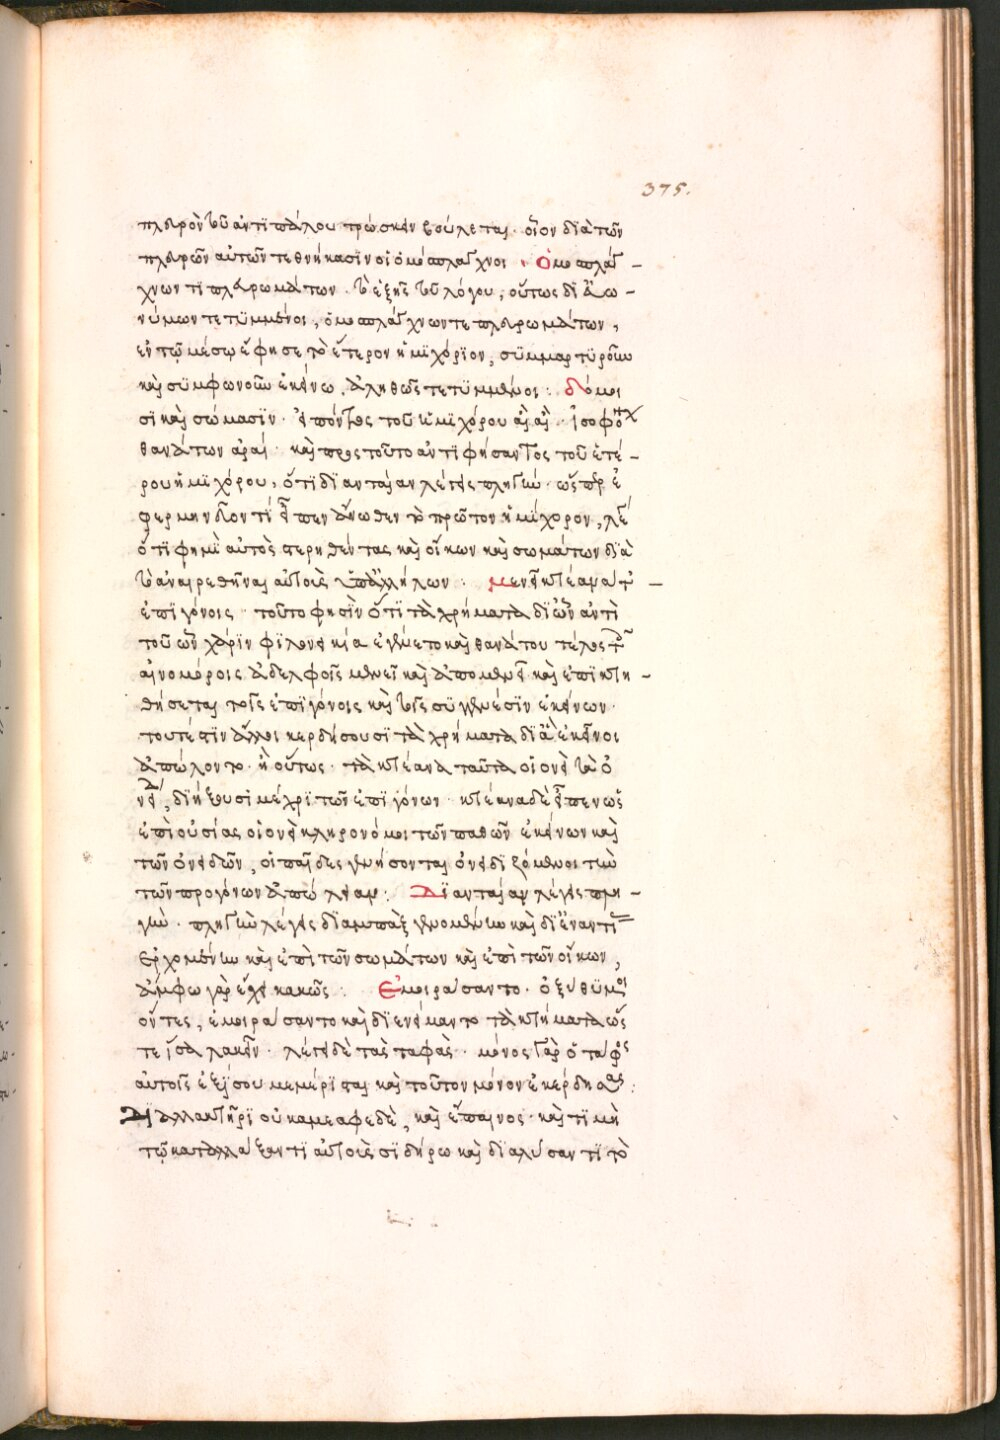 375.
πλευρὸν τοῦ ἀντιπάλου τρώσκειν βούλεται· οἷον διὰ τῶν
πλευρῶν αὐτῶν τεθνήκασιν οἱ ὁμόσπλαγχνοι · Ὁμοσπλάγ –
χνων τι πλευρωμάτων · τὸ ἑξῆς τοῦ λόγου, οὕτως δι' εὐω –
νύμων τετυμμένοι, ὁμοσπλάγχνων τε πλευρωμάτων,
ἐν τῷ μέσῳ ἔφησε τὸ ἕτερον ἡμιχόριον, συμμαρτυροῦν
καὶ συμφωνοῦν ἐκείνω, ἀληθῶς τετυμμένοι : δόμοι
σι καὶ σώμασιν · εἰπόντος τοῦ ἡμιχόρου αἲ αἲ · ἰσοφώνων
θανάτων ἀραί · καὶ προς τοῦτο ἀντιφήσαντος τοῦ ἑτέ –
ρου ἡμιχόρου, ὅτι διανταίαν λέγεις πληγὴν · ὥσπερ
φησὶ τί εἶπεν ἄνωθεν τὸ πρῶτον ἡμίχορον, λέγει
ὅτι φημὶ αὐτὸς στερηθέντας καὶ οἴκων καὶ σωμάτων διὰ
τὸ ἀναιρεθῆναι αὐτοὺς ὑπ' ἀλλήλων : μενεῖ κτέανα τ' –
ἐπιγόνοις · τοῦτο φησὶν ὅτι τὰ χρήματα δι' ὧν ἀντὶ
τοῦ ὧν χάριν φιλονεικία ἐγένετο καὶ θανάτου τέλος τοῖς
αἰνομόροις ἀδελφοῖς μενεῖ καὶ ἀπομενεῖ καὶ ἐπικτη –
θήσεται τοῖς ἐπιγόνοις καὶ τοῖς συγγενέσιν ἐκείνων ·
τουτέστιν ἄλλοι κερδήσουσι τὰ χρήματα δι' ἃ ἐκεῖνοι
ἀπώλοντο · ἢ οὕτως · τὰ κτέανα ταῦτα οἱονεὶ τὰ ὀ
νείδη, διήξουσι μέχρι τῶν ἐπιγόνων · κτέανα δὲ εἶπεν ὡς
ἐπὶ οὐσίας οἱονεὶ κληρονόμοι τῶν παθῶν ἐκείνων καὶ
τῶν ὀνειδῶν, οἱ παῖδες γενήσονται ὀνειδιζόμενοι τὴν
τῶν προγόνων ἀπώλειαν : Διανταίαν λέγεις πλη –
γὴν · πληγὴν λέγεις διαμπὰξ γενομένην καὶ δι' ἐναντί
ερχομένην καὶ ἐπὶ τῶν σωμάτων καὶ ἐπὶ τῶν οἴκων,
ἄμφω γὰρ ἔχει κακῶς : Ἐμοιράσαντο · ὀξύθυμοι
ὄντες, ἐμοιράσαντο καὶ διενείμαντο τὰ κτήματα ὥς
τε ἴσα λαχεῖν · λέγει δὲ τὰς ταφάς · μόνος γὰρ ὁ τάφος
αὐτοῖς ἐξ ἴσου μεμέρισται καὶ τοῦτον μόνον ἐκέρδησαν :
Διαλλακτῆρι οὐκ ἀμεμφεία δὲ, καὶ ἔπαινος · καί τι μὴ
τῷ καταλλάξαντι αὐτοὺς σιδήρω καὶ διαλύσαντι τὸ